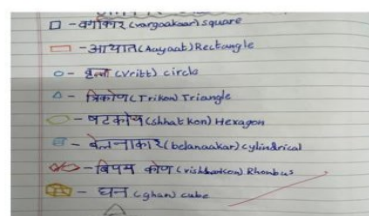 □ - वर्गाकार (vargaakaar) square
- आयात (Aayaat) Rectangle
- वृत्त (vritt) circle
- त्रिकोण (Trikon) Triangle
- षटकोण (shhat kon) Hexagon
- बेलनाकार (belanaakar) cylindrical
- विषम कोण (vishhamkon) Rhombus
- घन (ghan) cube